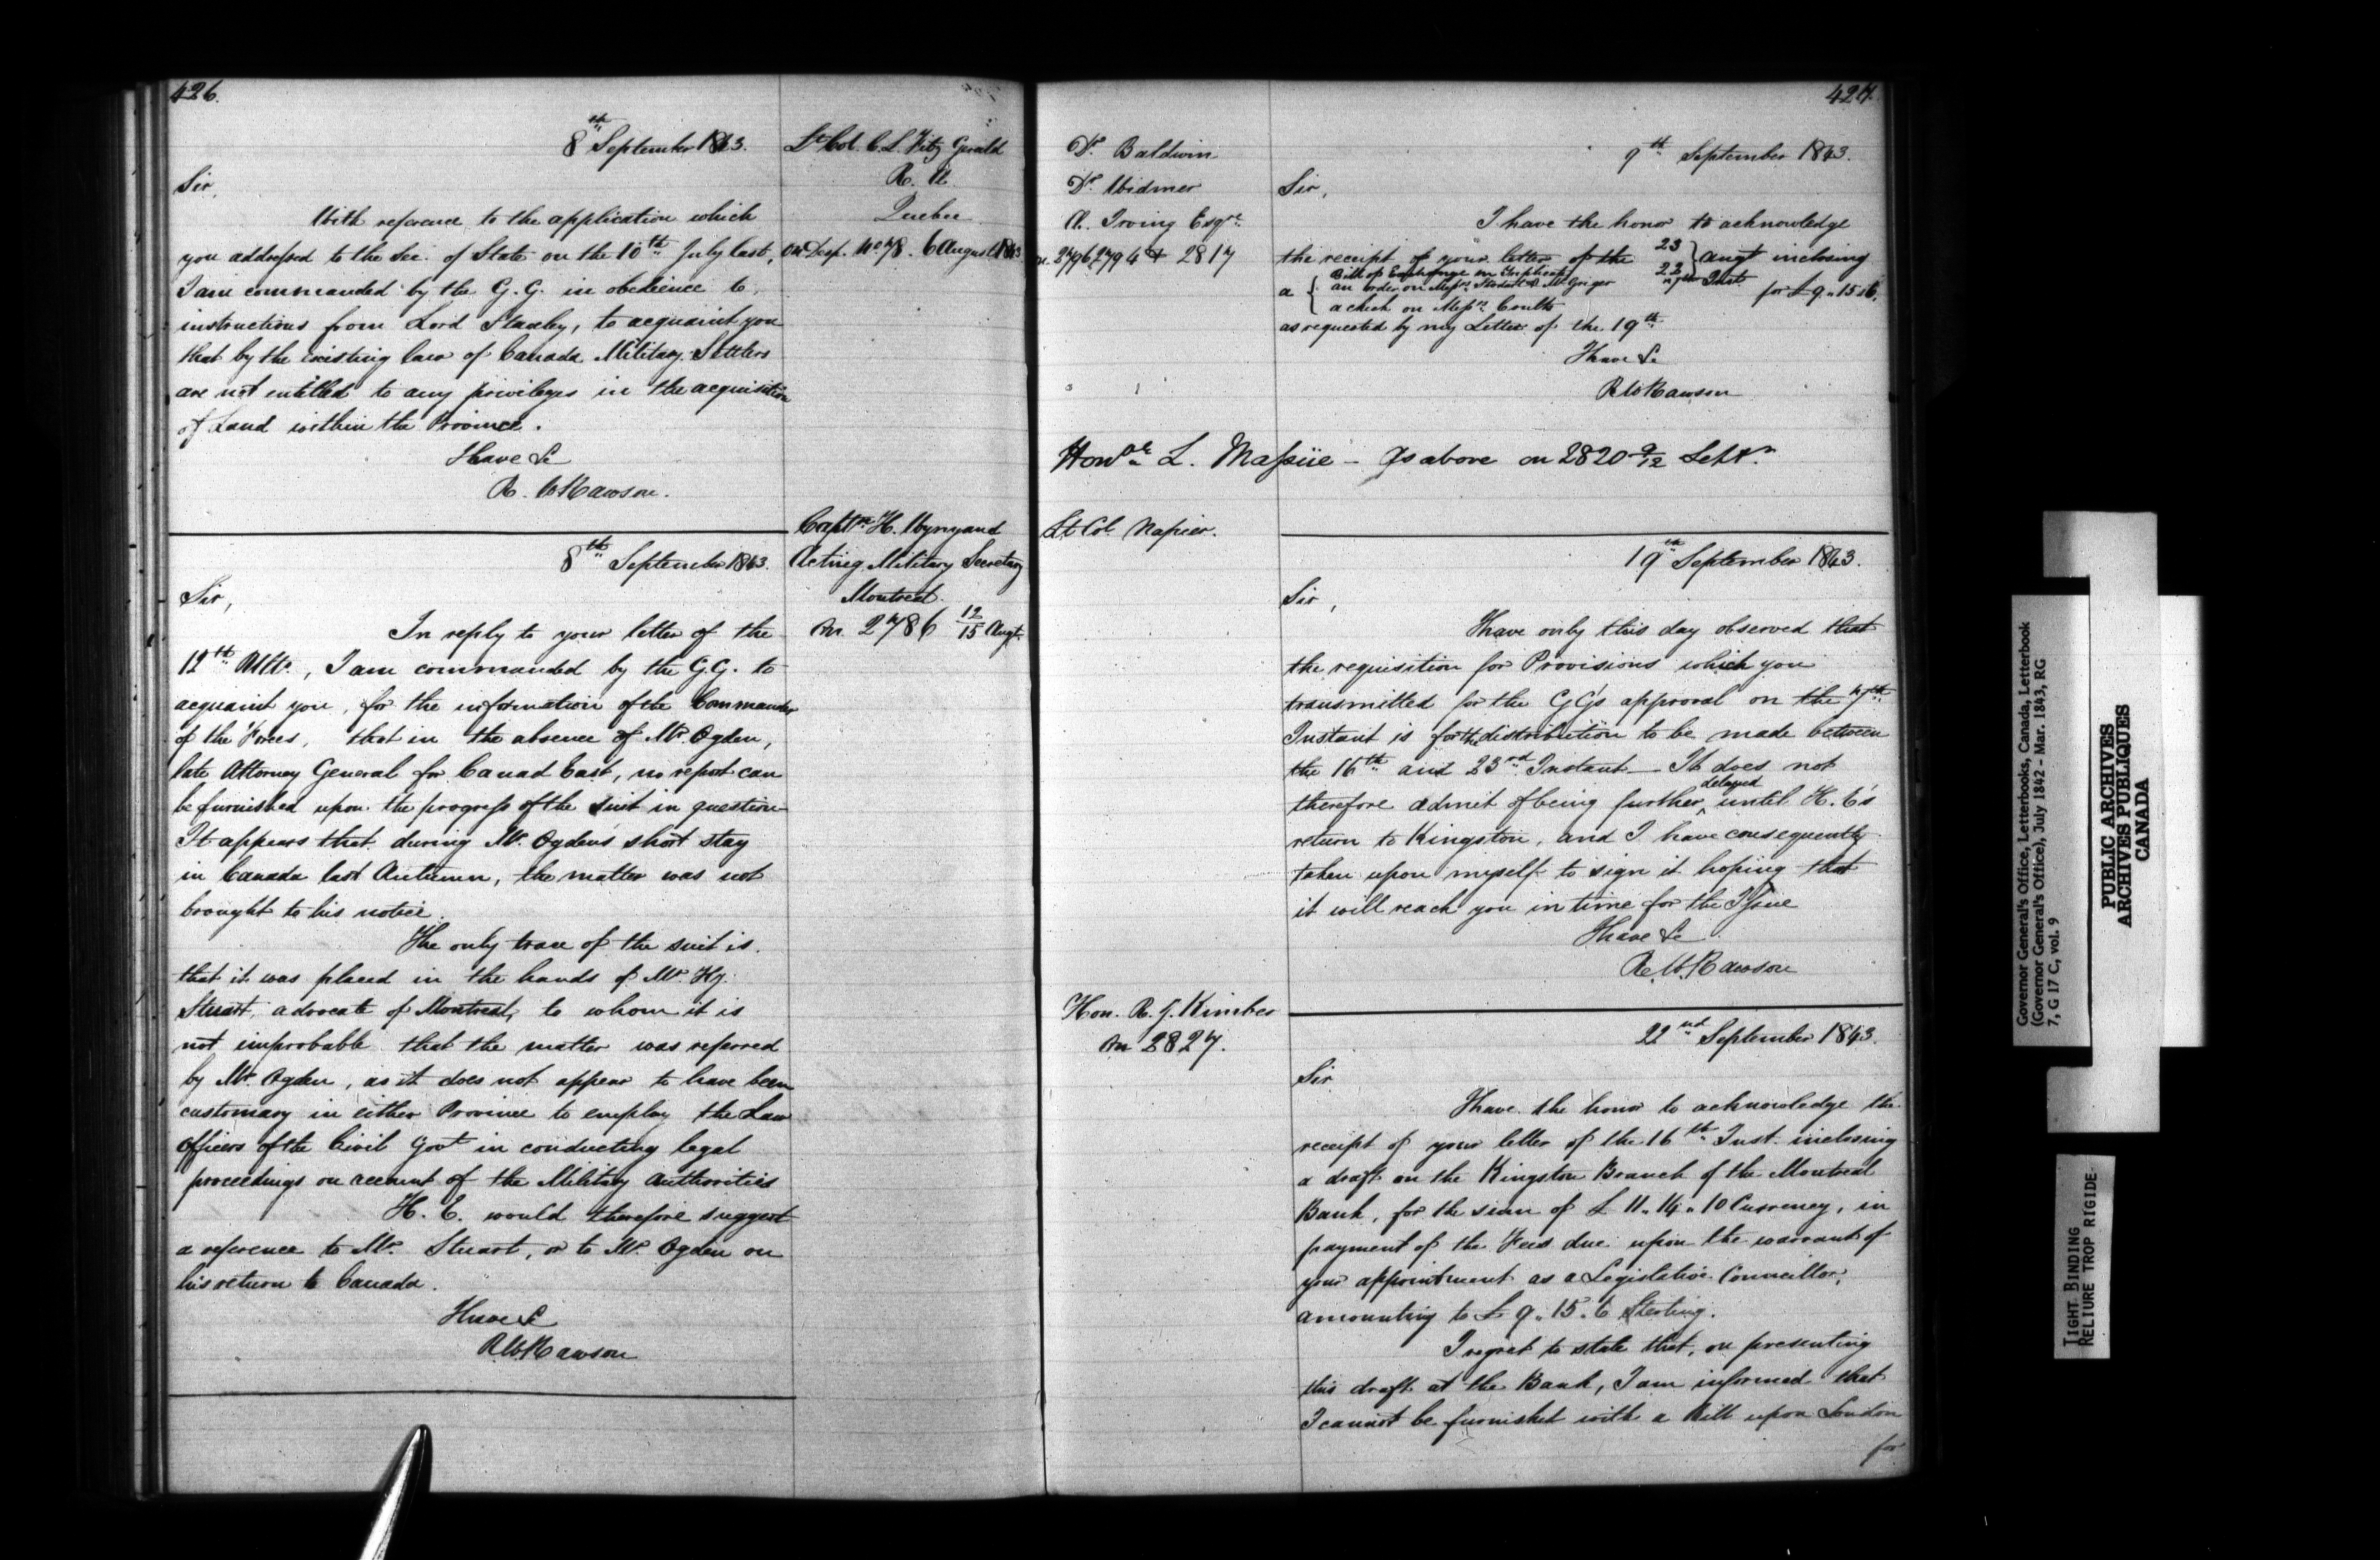 426.
8th September 1843.
Lt Col. C. L. Fitz Gerald
R. A.
Quebec
on Desp. No 78. 6 August 1843
Sir,
With reference to the application which
you addressed to the Sec. of State on the 10th July last,
I am commanded by the G. G. in obedience to
instructions from Lord Stanley, to acquaint you
that by the existing law of Canada Military Settlers
are not entitled to any privileges in the acquisition
of Land within the Province.
I have &c
R. W Rawson.
Captn H. Wynyard
Acting Military Secretary
Montreal.
on 2786 12/15 Augt.
8th September 1843.
Sir,
In reply to your letter of the
12th Ulto., I am commanded by the G.G. to
acquaint you, for the information of the Commander
of the Forces, that in the absence of Mr. Ogden,
late Attorney General for Canad East, no report can
be furnished upon the progress of the suit in question
It appears that during Mr. Ogden's short stay
in Canada last Autumn, the matter was not
brought to his notice.
The only trace of the suit is
that it was placed in the hands of Mr. Hy.
Stuart, advocate of Montreal, to whom it is
not improbable that the matter was referred
by Mr. Ogden, as it does not appear to have been
customary in either Province to employ the Law
Officers of the Civil Govt in conducting legal
proceedings on account of the Military Authorities
H. E. would therefore suggest
a reference to Mr. Stuart, or to Mr. Ogden on
his return to Canada.
I have &c
R W Rawson
427.
Dr. Baldwin
Dr. Widmer
Æ. Irving Esqre.
on 2796, 2794 & 2817
9th September 1843.
Sir,
I have the honor to acknowledge
the receipt of your letter of the 23 22 Augt 7th Inst inclosing
a Bill of Exchange in Triplicate
an order on Messrs McGrigor
a check on Messrs. Coutts
for £9..15..6.
as requested by my Letter of the 19th
I have &c
R W Rawson
Honble L. Massüe - As above on 2820 9/12 Septr.
Lt Col Napier.
19th September 1843.
Sir,
I have only this day observed that
the requisition for Provisions which you
transmitted for the GG's approval on the 7th
Instant is for the distribution to be made between
the 16th and 23rd Instant - It does not
therefore admit of being further delayed until H. E's
return to Kingston, and I have consequently
taken upon myself to sign it hoping that
it will reach you in time for the Issue
I have &c
R W. Rawson
Hon. R. J. Kimber
on 2827.
22nd September 1843.
Sir
I have the honor to acknowledge the
receipt of your letter of the 16th Inst. inclosing
a draft on the Kingston Branch of the Montreal
Bank, for the sum of £ 11 .. 14 .. 10 Currency, in
payment of the Fees due upon the warrant of
your appointment as a Legislative Councillor,
amounting to £ 9 .. 15 .. 6 Sterling.
I regret to state that, on presenting
this draft at the Bank, I am informed that
I cannot be furnished with a Bill upon London
for
Governor General's Office, Letterbooks, Canada, Letterbook
(Governor General's Office), July 1842 - Mar. 1843, RG
7, G 17 C, vol. 9
PUBLIC ARCHIVES
ARCHIVES PUBLIQUES
CANADA
TIGHT BINDING
RELIURE TROP RIGIDE